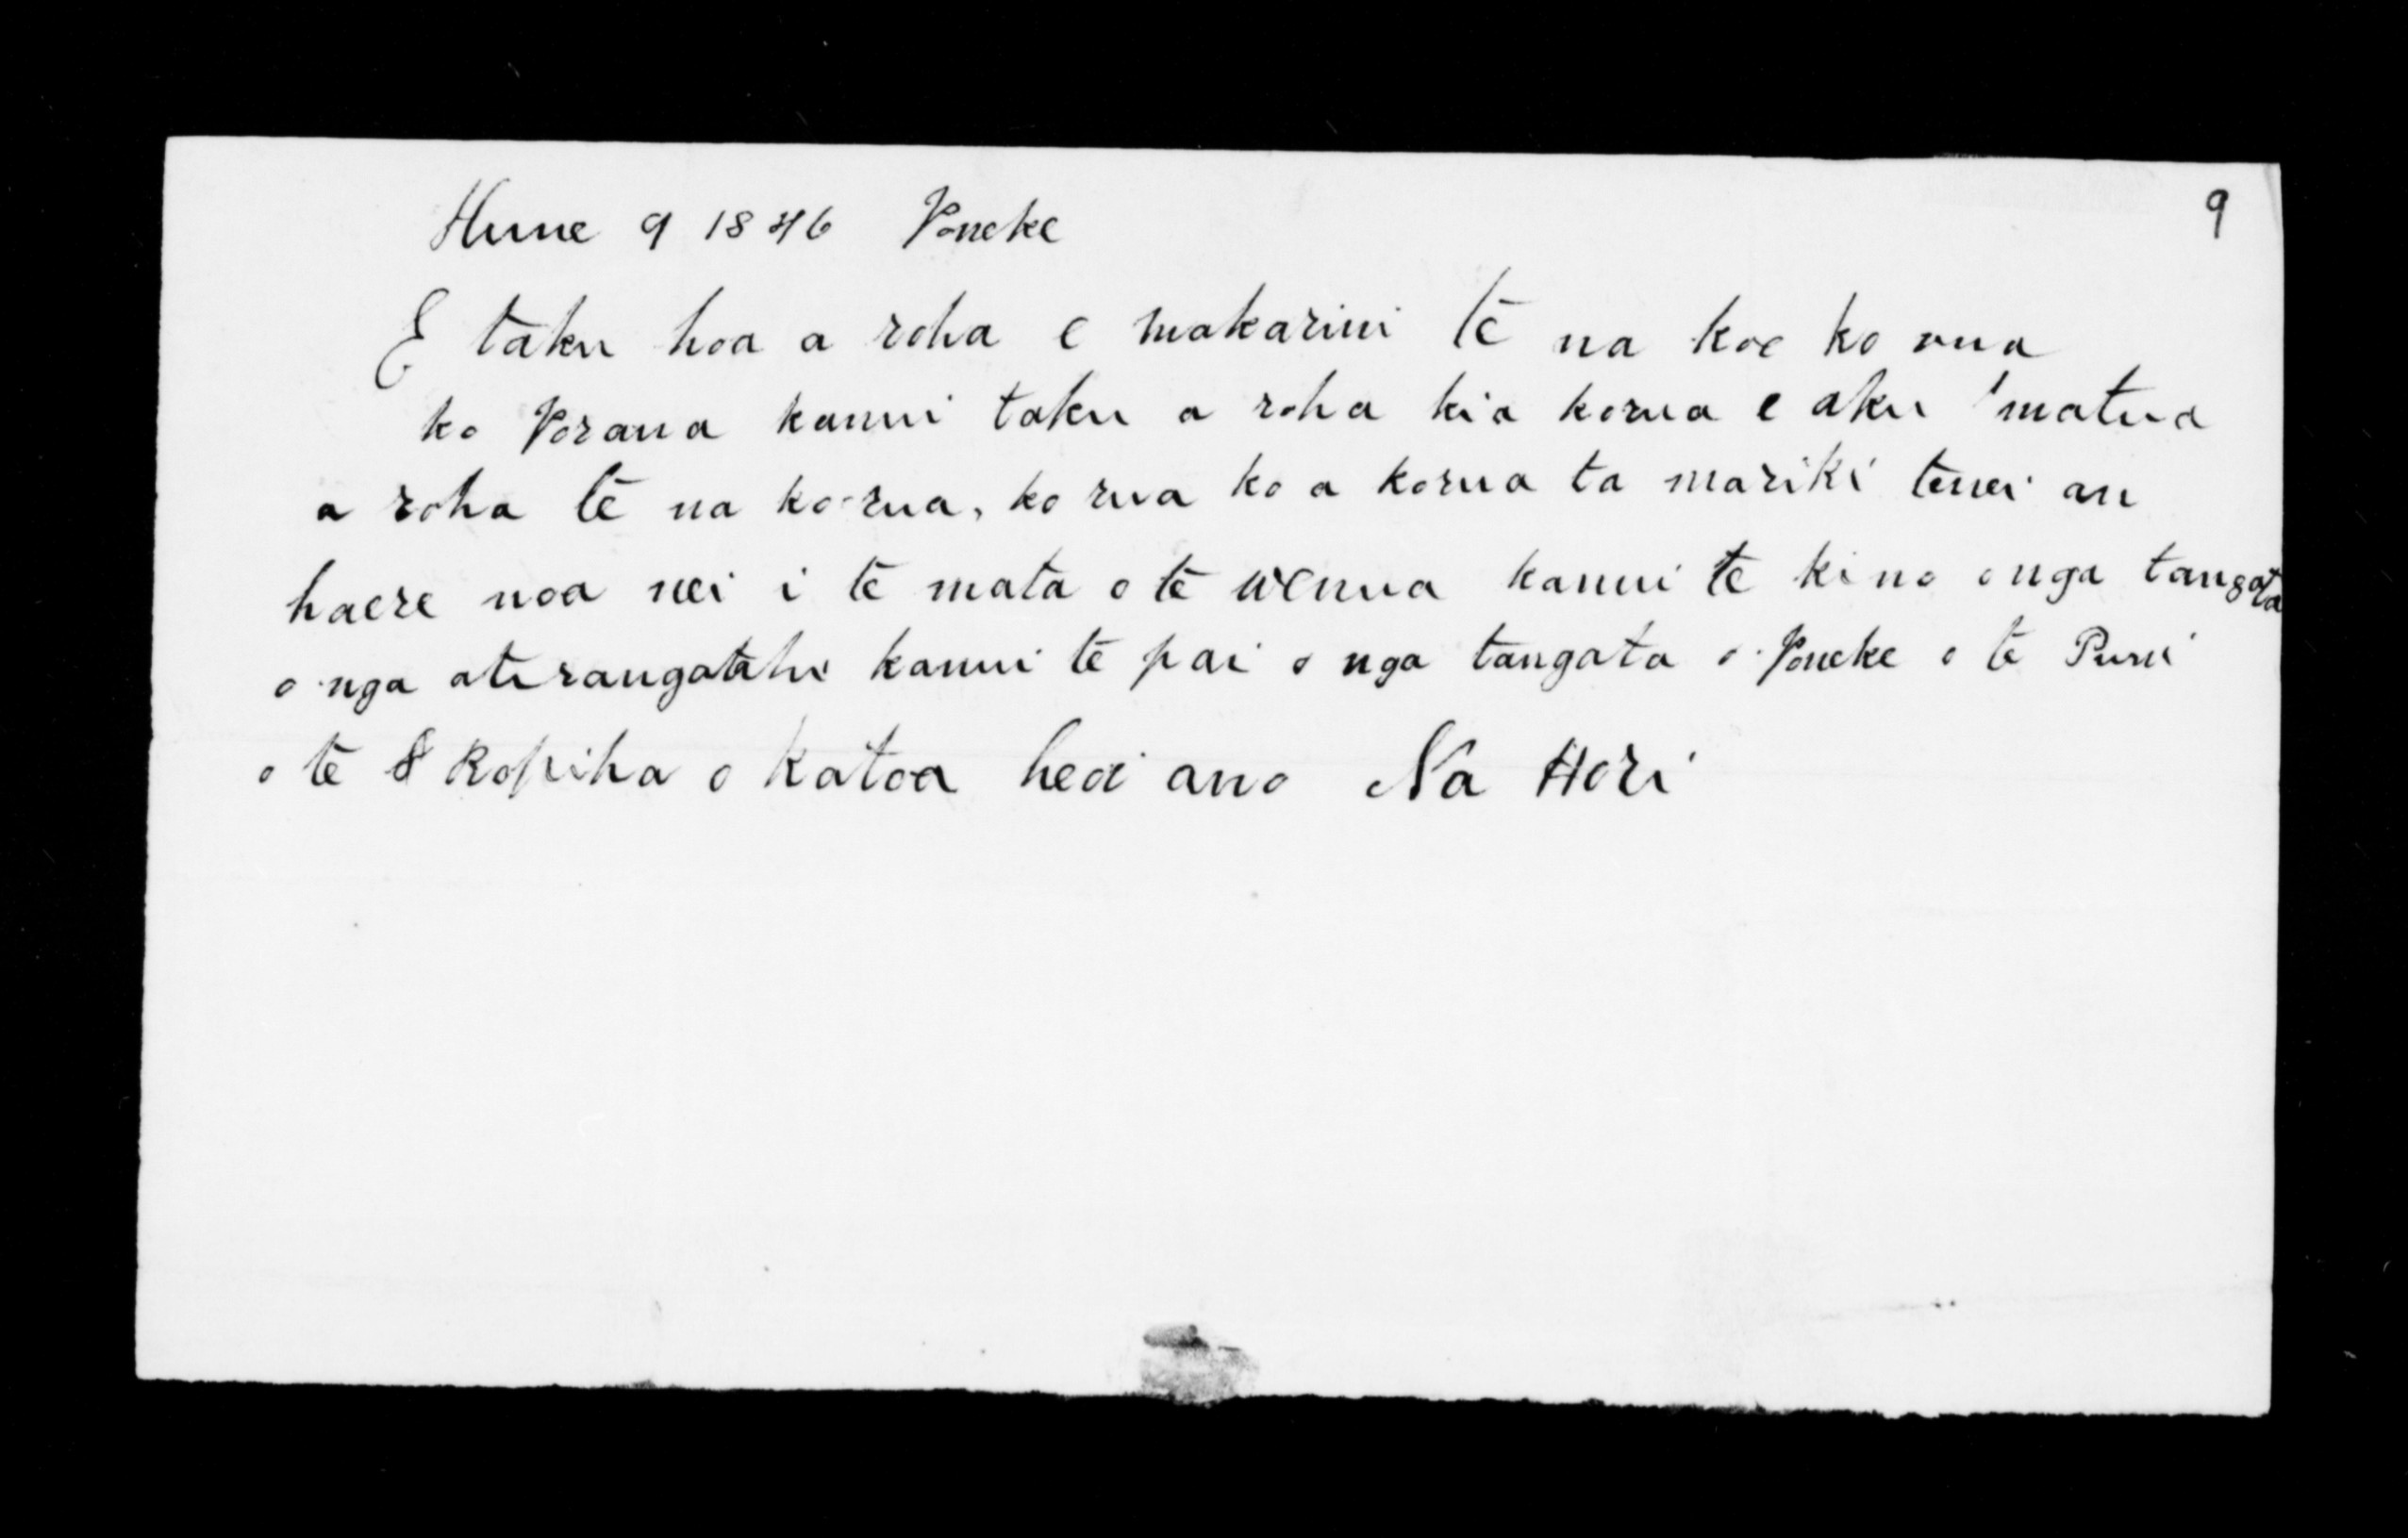 Hune 9 1846 Poneke
9
E taku hoa a roha e makarini te na koe ko rua
ko Porana kanui taku a roha kia korua e aku matua
a roha te na ko rua, ko rua ko a korua ta mariki tenei au
haere noa nei i te mata o te wenua kanui te ki no o nga tangata
o nga atirangatahi kanui te pai o nga tangata o Poneke o te Puni
o te Ropiha o katoa heoi ano Na Hori